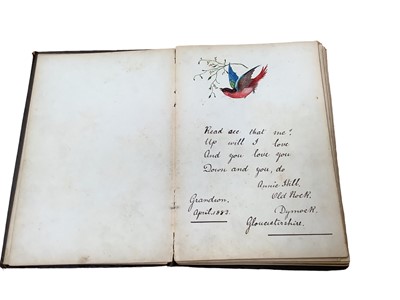 Read see that me!
Up will I love
And you love you
Down and you, do
Annie Hill,
Old Rock,
Grandson, Dymock,
April, 1883. Gloucestershire.